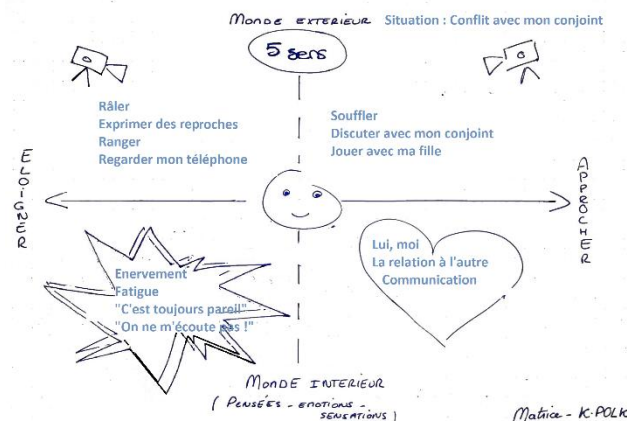 MONDE EXTERIEUR
Situation : Conflit avec mon conjoint
5 sens
Râler
Exprimer des reproches
Ranger
Regarder mon téléphone
Souffler
Discuter avec mon conjoint
Jouer avec ma fille
ELOIGNER
APPROCHER
Enervement
Fatigue
"C'est toujours pareil"
"On ne m'écoute pas !"
Lui, moi
La relation à l'autre
Communication
MONDE INTERIEUR
(PENSÉES - EMOTIONS -
SENSATIONS)
Matrice - K. POLK